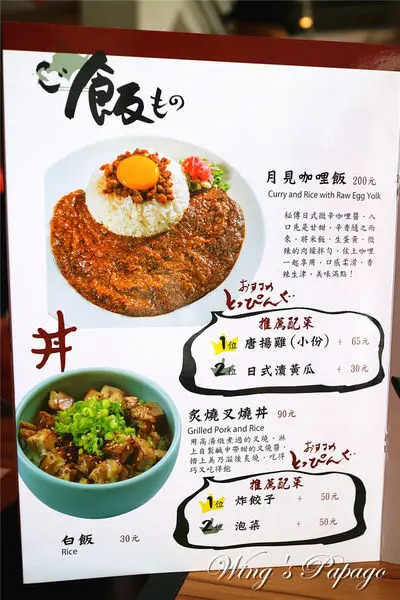 ご飯もの
月見咖哩飯 200元
Curry and Rice with Raw Egg Yolk
秘傳日式微辛咖哩醬，入
口先是甘甜，辛香隨之而
來。將米飯，生蛋黃，微
辣的肉燥拌勻，佐上咖哩
一起享用，口感柔滑，香
辣生津，美味滿點！
おすすめ
とっぴんぐ
推薦配菜
1位 唐揚雞(小份) + 65元
2位 日式漬黃瓜 + 30元
丼
炙燒叉燒丼 90元
Grilled Pork and Rice
用高湯燉煮過的叉燒，淋
上自製鹹中帶甜的叉燒醬，
擠上美乃滋後炙燒，吃得
巧又吃得飽
おすすめ
とっぴんぐ
推薦配菜
1位 炸餃子 + 50元
2位 泡菜 + 50元
白飯 30元
Rice
Wing's Papago